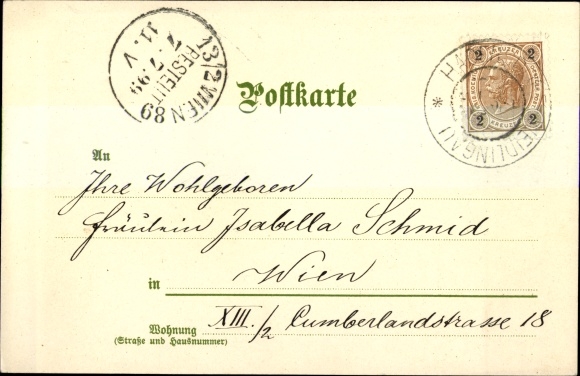 13/2 WIEN 89
BESTELLT
7. 7. 99
11. V
Postkarte
2 KREUZER 2
2 KREUZER 2
An
Ihre Wohlgeboren
Fräulein Isabella Schmid
in Wien
Wohnung XIII./2 Cumberlandstrasse 18
(Straße und Hausnummer)